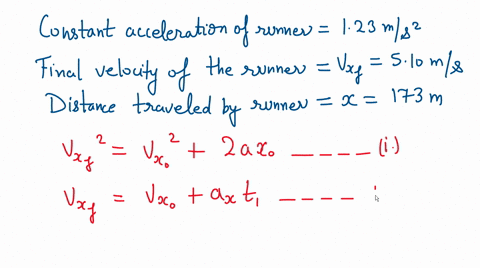 Constant acceleration of runner = 1.23 m/s²
Final velocity of the runner = Vxf = 5.10 m/s
Distance traveled by runner = x = 173 m
Vxf² = Vx₀² + 2ax₀ ---- (i.)
Vxf = Vx₀ + axt₁ ----